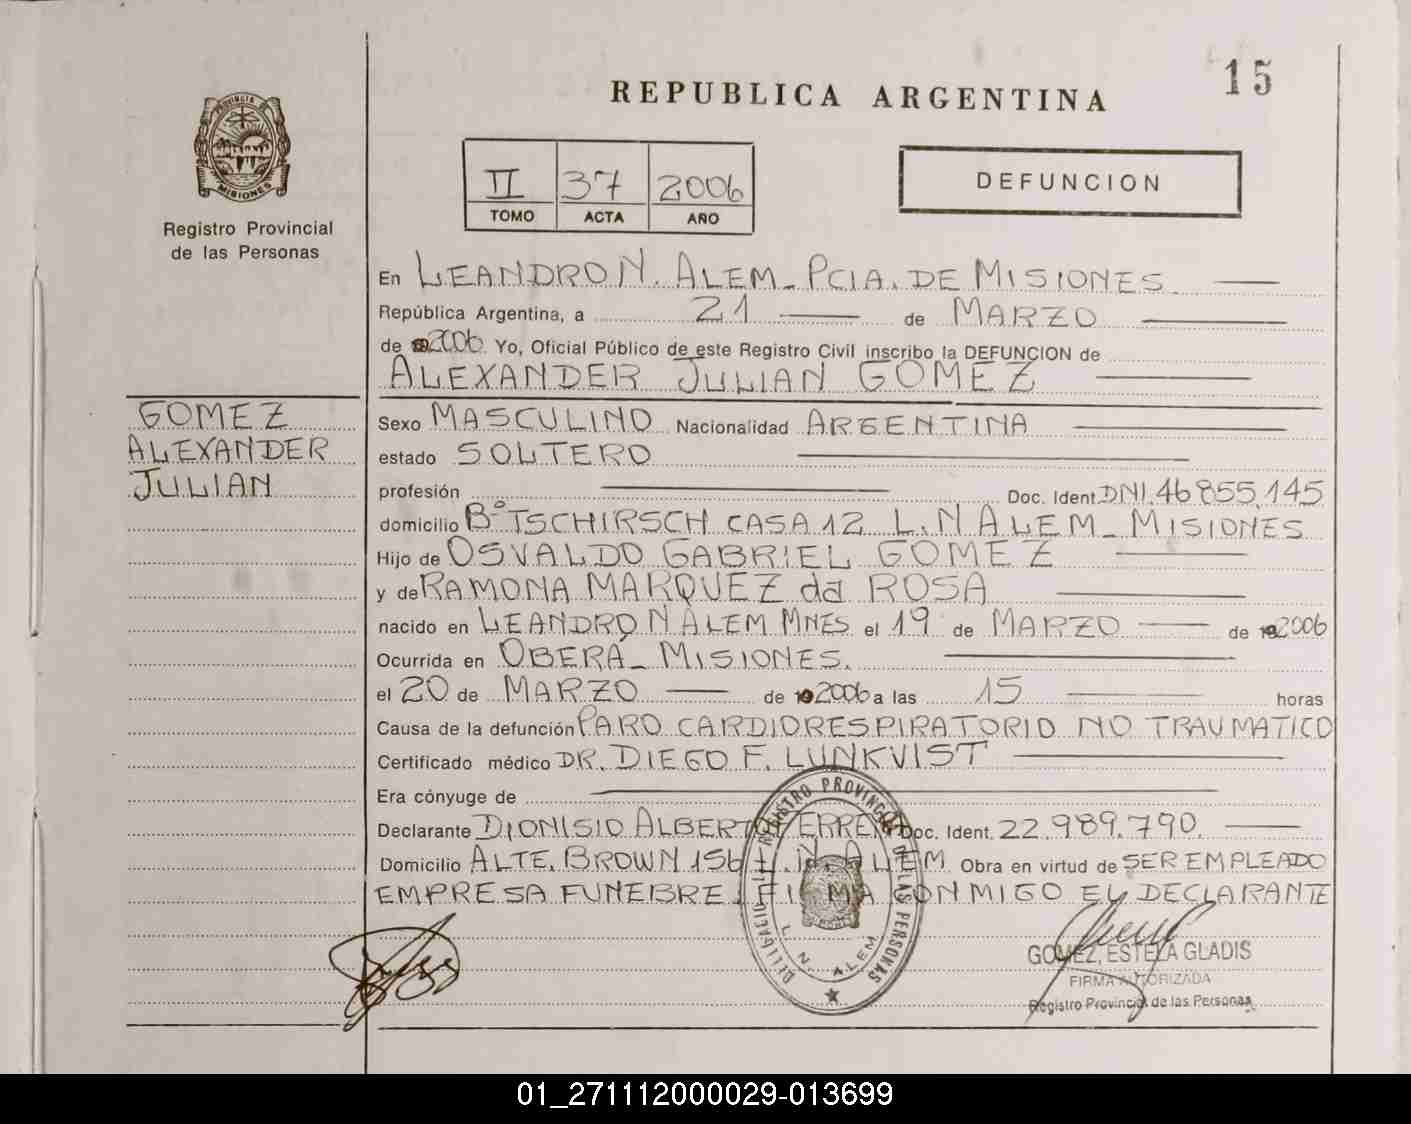 15
REPUBLICA ARGENTINA
PROVINCIA DE MISIONES
Registro Provincial
de las Personas
II 37 2006
TOMO ACTA AÑO
DEFUNCION
En LEANDRO N. ALEM - PCIA. DE MISIONES
República Argentina, a 21 de MARZO
de 2006 Yo, Oficial Público de este Registro Civil inscribo la DEFUNCION de
ALEXANDER JULIAN GOMEZ
GOMEZ
ALEXANDER
JULIAN
Sexo MASCULINO Nacionalidad ARGENTINA
estado SOLTERO
profesión Doc. Ident. DNI. 46.855.145
domicilio Bº TSCHIRSCH CASA 12 L.N ALEM - MISIONES
Hijo de OSVALDO GABRIEL GOMEZ
y de RAMONA MARQUEZ da ROSA
nacido en LEANDRO N ALEM MNES el 19 de MARZO de 2006
Ocurrida en OBERÁ - MISIONES.
el 20 de MARZO de 2006 a las 15 horas
Causa de la defunción PARO CARDIORESPIRATORIO NO TRAUMATICO
Certificado médico DR. DIEGO F. LUNKVIST
Era cónyuge de
Declarante DIONISIO ALBERTO Doc. Ident. 22.989.790
Domicilio ALTE. BROWN 156 L.N. ALEM Obra en virtud de SER EMPLEADO
EMPRESA FUNEBRE. FIRMA CONMIGO EL DECLARANTE
REGISTRO PROVINCIAL DE LAS PERSONAS
L. N. ALEM
GOMEZ, ESTELA GLADIS
FIRMA AUTORIZADA
Registro Provincial de las Personas
01_271112000029-013699